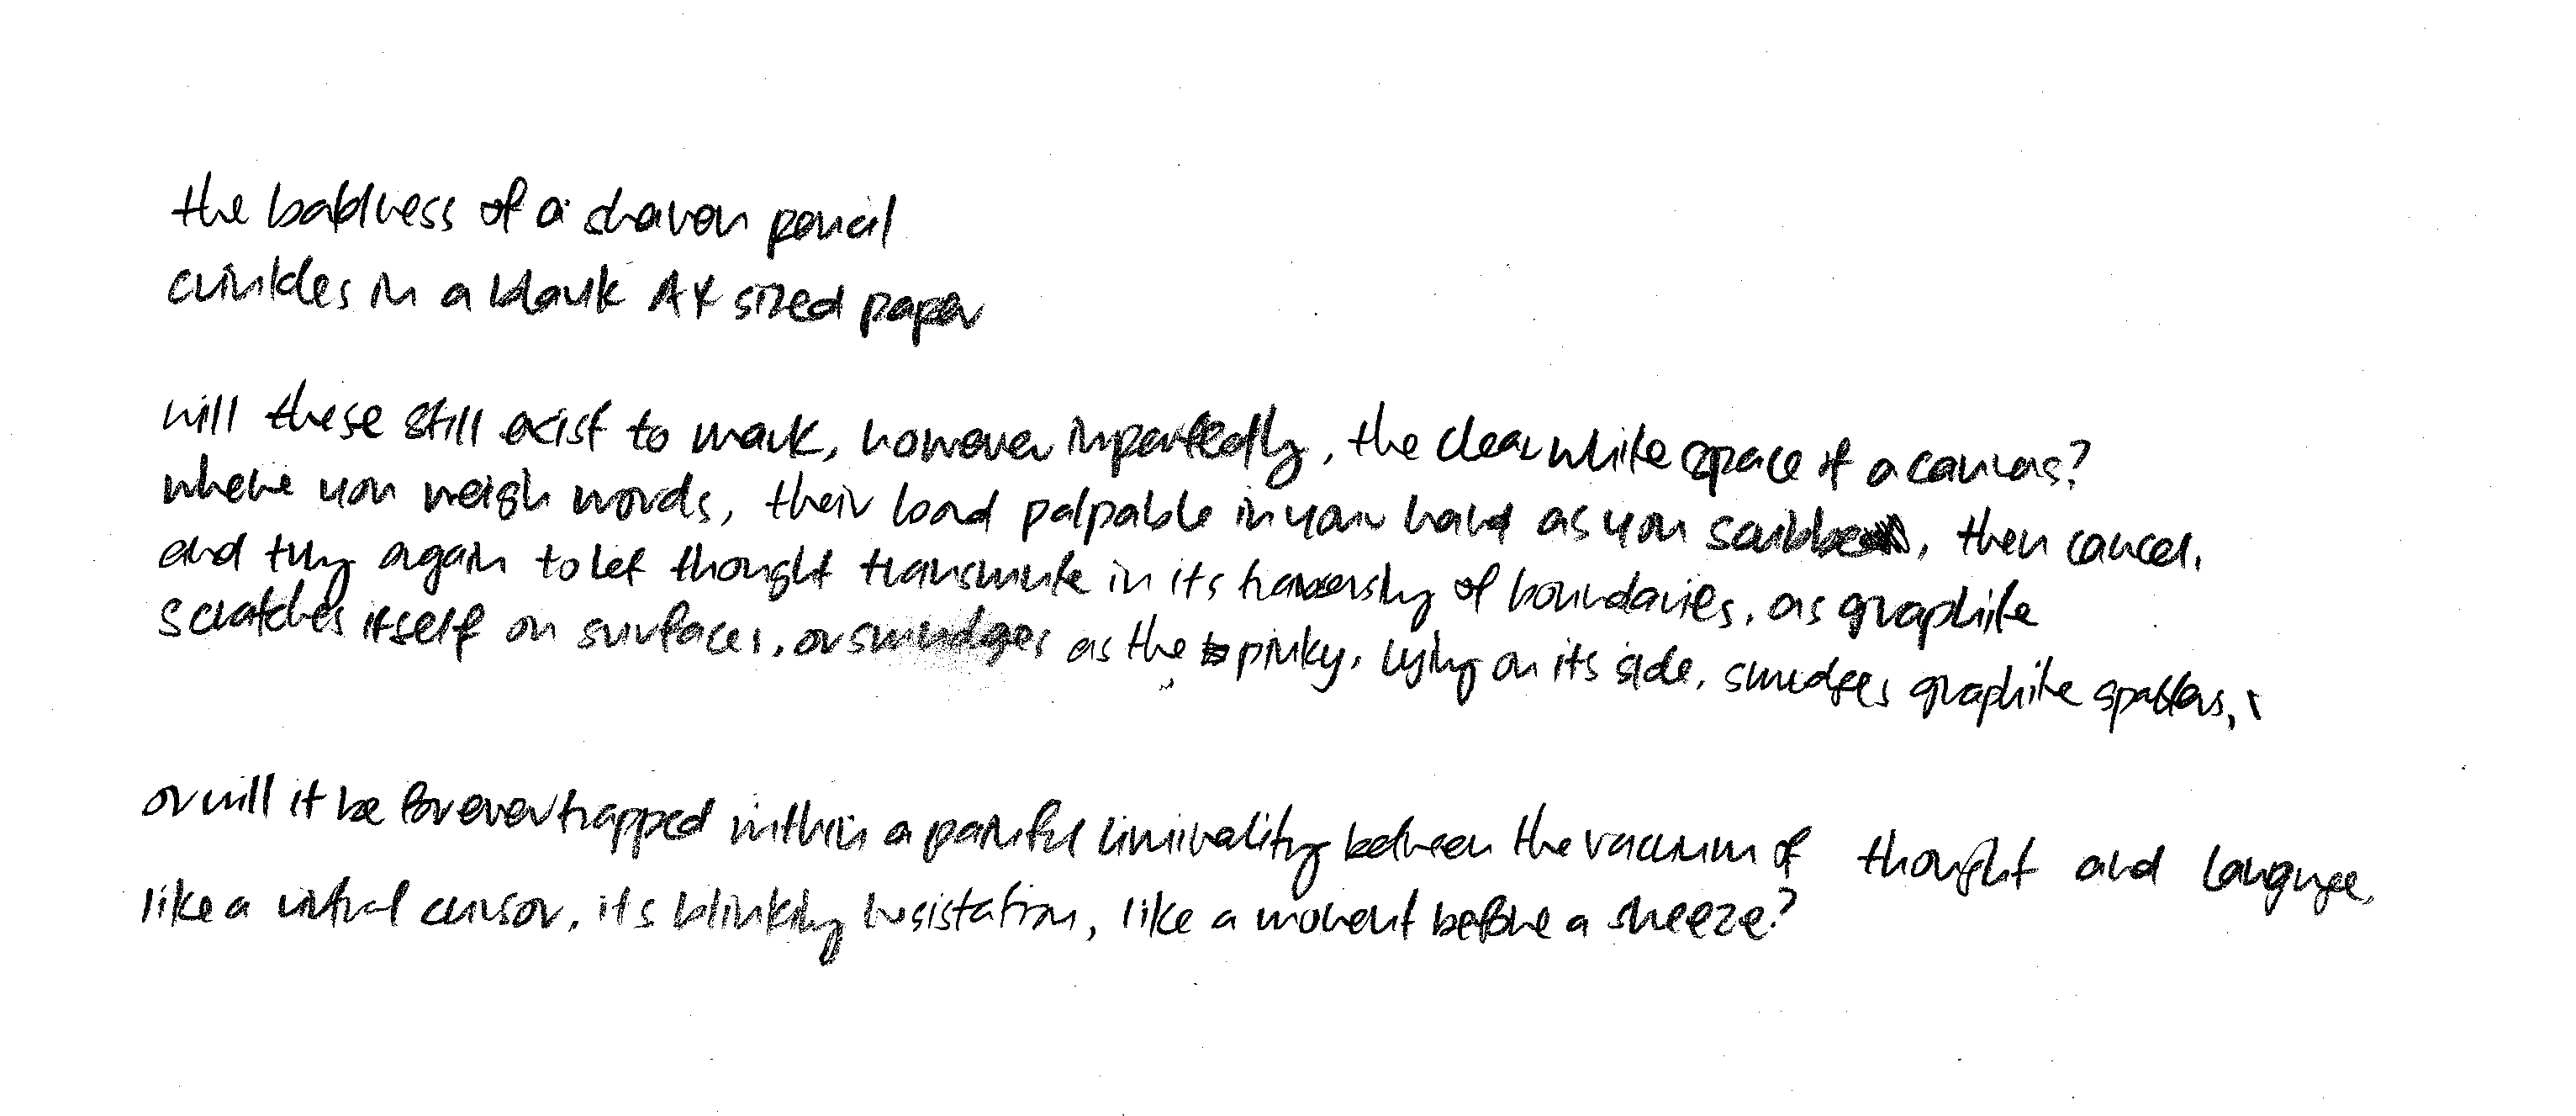 the baldness of a shaven pencil
crinkles in a blank A4 sized paper
will these still exist to mark, however imperfectly, the clear white space of a canvas?
where you weigh words, their load palpable in your hand as you scribble, then cancel,
and try again to let thought transmute in its traversing of boundaries, as graphite
scratches itself on surfaces, or smudges as the pinky, lying on its side, smudges graphite spatters,
or will it be forever trapped within a painful liminality between the vacuum of thought and language,
like a virtual cursor, its blinking hesistation, like a moment before a sneeze?